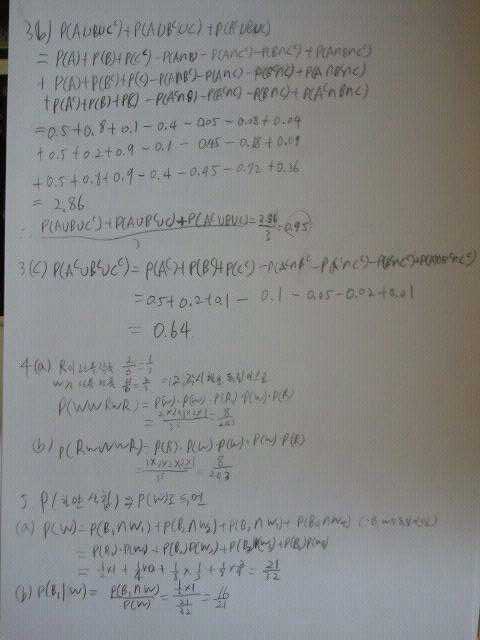 3(b) P(A∪B∪Cᶜ)+P(A∪Bᶜ∪C)+P(Aᶜ∪B∪C)
= P(A)+P(B)+P(Cᶜ)-P(A∩B)-P(A∩Cᶜ)-P(B∩Cᶜ)+P(A∩B∩Cᶜ)
+ P(A)+P(Bᶜ)+P(C)-P(A∩Bᶜ)-P(A∩C)-P(Bᶜ∩C)+P(A∩Bᶜ∩C)
+P(Aᶜ)+P(B)+P(C)-P(Aᶜ∩B)-P(Aᶜ∩C)-P(B∩C)+P(Aᶜ∩B∩C)
=0.5+0.8+0.1-0.4-0.05-0.08+0.04
+0.5+0.2+0.9-0.1-0.45-0.18+0.09
+0.5+0.8+0.9-0.4-0.45-0.72+0.36
= 2.86
∴ P(A∪B∪Cᶜ)+P(A∪Bᶜ∪C)+P(Aᶜ∪B∪C)/3 = 2.86/3 = 0.95
3(C) P(Aᶜ∪Bᶜ∪Cᶜ)=P(Aᶜ)+P(Bᶜ)+P(Cᶜ)-P(Aᶜ∩Bᶜ)-P(Aᶜ∩Cᶜ)-P(Bᶜ∩Cᶜ)+P(Aᶜ∩Bᶜ∩Cᶜ)
=0.5+0.2+0.1-0.1-0.05-0.02+0.01
= 0.64
4(a) R이 나올 확률
W가 나올 확률
P(WWRWR)=P(W)·P(W)·P(R)·P(W)·P(R)
= 8/243
(b) P(RWWWR)=P(R)·P(W)·P(W)·P(W)·P(R)
= 8/243
5 P( ) ⇒ P(W)
(a) P(W)=P(B₁∩W₁)+P(B₂∩W₂)+P(B₃∩W₃)+P(B₄∩W₄)
= P(B₁)·P(W₁)+P(B₂)P(W₂)+P(B₃)P(W₃)+P(B₄)P(W₄)
= 21/32
(b) P(B₁|W)= P(B₁∩W)/P(W) = 16/21